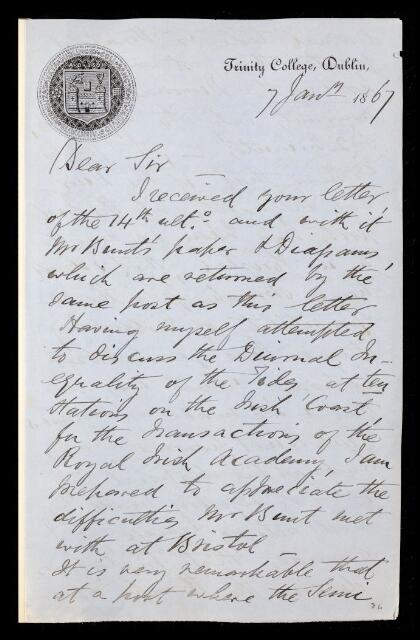 Trinity College, Dublin,
7 Janry 1867
Dear Sir
I received your letter
of the 14th ult.o and with it
Mr Bunt's paper & Diagrams
which are returned by the
same post as this letter
Having myself attempted
to discuss the Diurnal In-
equality of the Tides at ten
Stations on the Irish Coast,
for the Transactions of the
Royal Irish Academy, I am
prepared to appreciate the
difficulties Mr Bunt met
with at Bristol
It is very remarkable that
at a port where the Semi